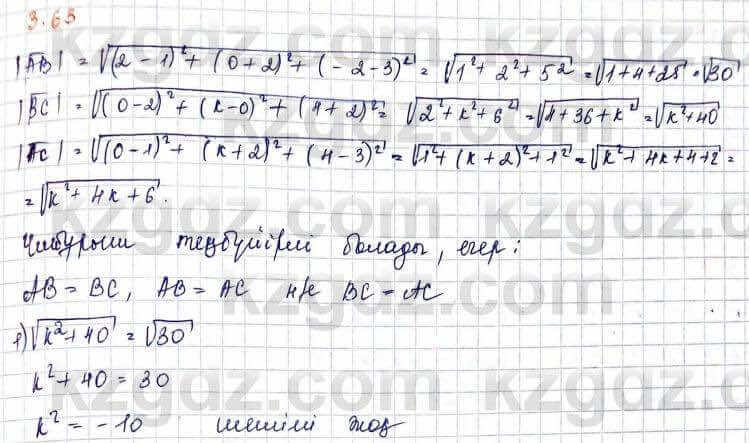 3.63
|AB| = √(2-1)²+(0+2)²+(-2-3)² = √1²+2²+5² = √1+4+25 = √30
|BC| = √(0-2)²+(к-0)²+(4+2)² = √2²+к²+6² = √4+36+к² = √к²+40
|AC| = √(0-1)²+(к+2)²+(4-3)² = √1²+(к+2)²+1² = √к²+4к+4+2 =
= √к²+4к+6.
Үшбұрыш теңбүйірлі болады, егер:
AB = BC, AB = AC н/е BC = AC
1) √к²+40 = √30
к²+40 = 30
к² = -10 шешімі жоқ
kzgdz.com